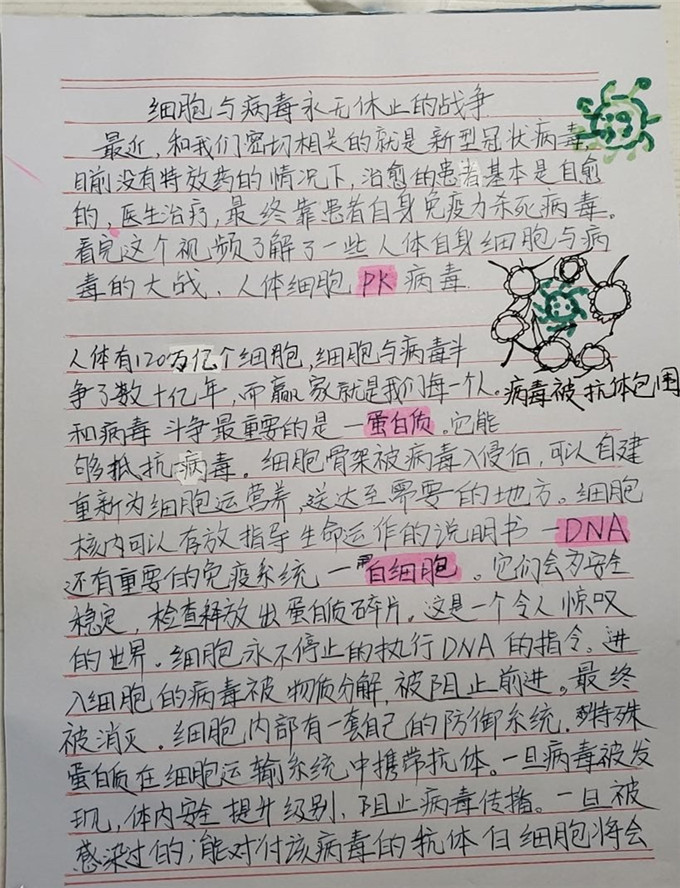 细胞与病毒永无休止的战争
最近，和我们密切相关的就是新型冠状病毒，
目前没有特效药的情况下，治愈的患者基本是自愈
的，医生治疗，最终靠患者自身免疫力杀死病毒。
看完这个视频了解了一些人体自身细胞与病
毒的大战、人体细胞PK病毒.
人体有120万亿个细胞，细胞与病毒斗
争了数十亿年，而赢家就是我们每一个人。
病毒被抗体包围
和病毒斗争最重要的是一蛋白质。它能
够抵抗病毒。细胞骨架被病毒入侵后，可以自建
重新为细胞运营养，送达至需要的地方。细胞
核内可以存放指导生命运作的说明书一DNA
还有重要的免疫系统一白细胞。它们会为安全
稳定，检查释放出蛋白质碎片。这是一个令人惊叹
的世界。细胞永不停止的执行DNA的指令。进
入细胞的病毒被物质分解，被阻止前进。最终
被消灭。细胞内部有一套自己的防御系统.特殊
蛋白质在细胞运输系统中携带抗体。一旦病毒被发
现，体内安全提升级别，阻止病毒传播。一旦被
感染过的，能对付该病毒的抗体白细胞将会